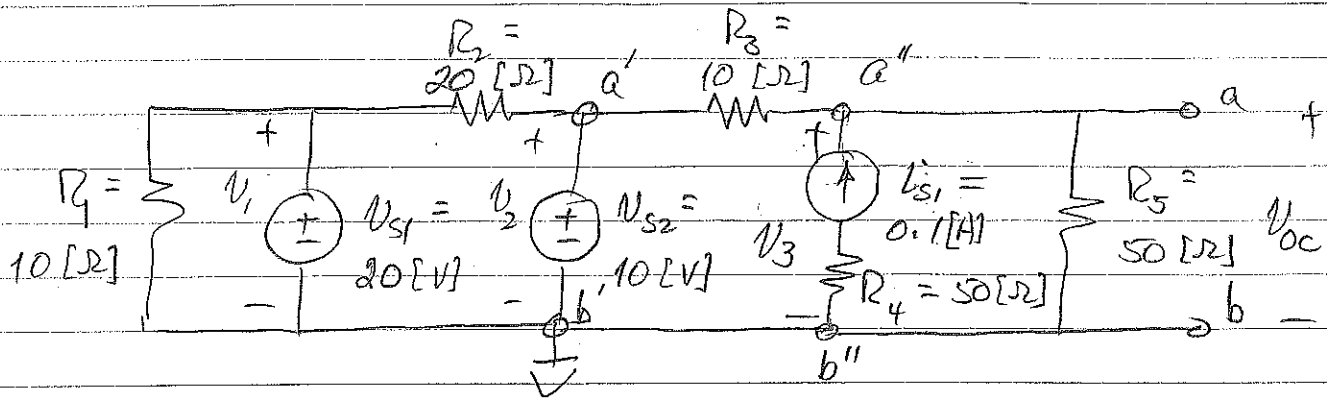 R2 =
20 [Ω]
a'
R3 =
10 [Ω]
a"
a
+
R1 =
10 [Ω]
+
v1
-
+
-
vS1 =
20 [V]
+
v2
-
+
-
vS2 =
10 [V]
b'
+
v3
-
iS1 =
0.1 [A]
R4 = 50 [Ω]
b"
R5 =
50 [Ω]
vOC
b
-